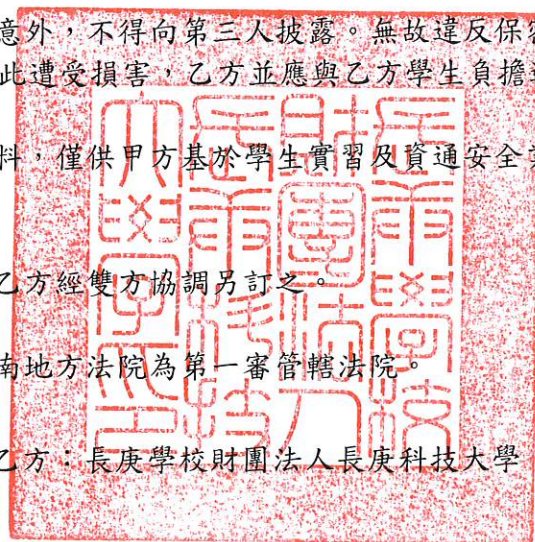 意外，不得向第三人披露。無故違反保密
此遭受損害，乙方並應與乙方學生負擔
料，僅供甲方基於學生實習及資通安全
乙方經雙方協調另訂之。
南地方法院為第一審管轄法院。
乙方：長庚學校財團法人長庚科技大學
長庚學校
財團法人
長庚科技
大學印